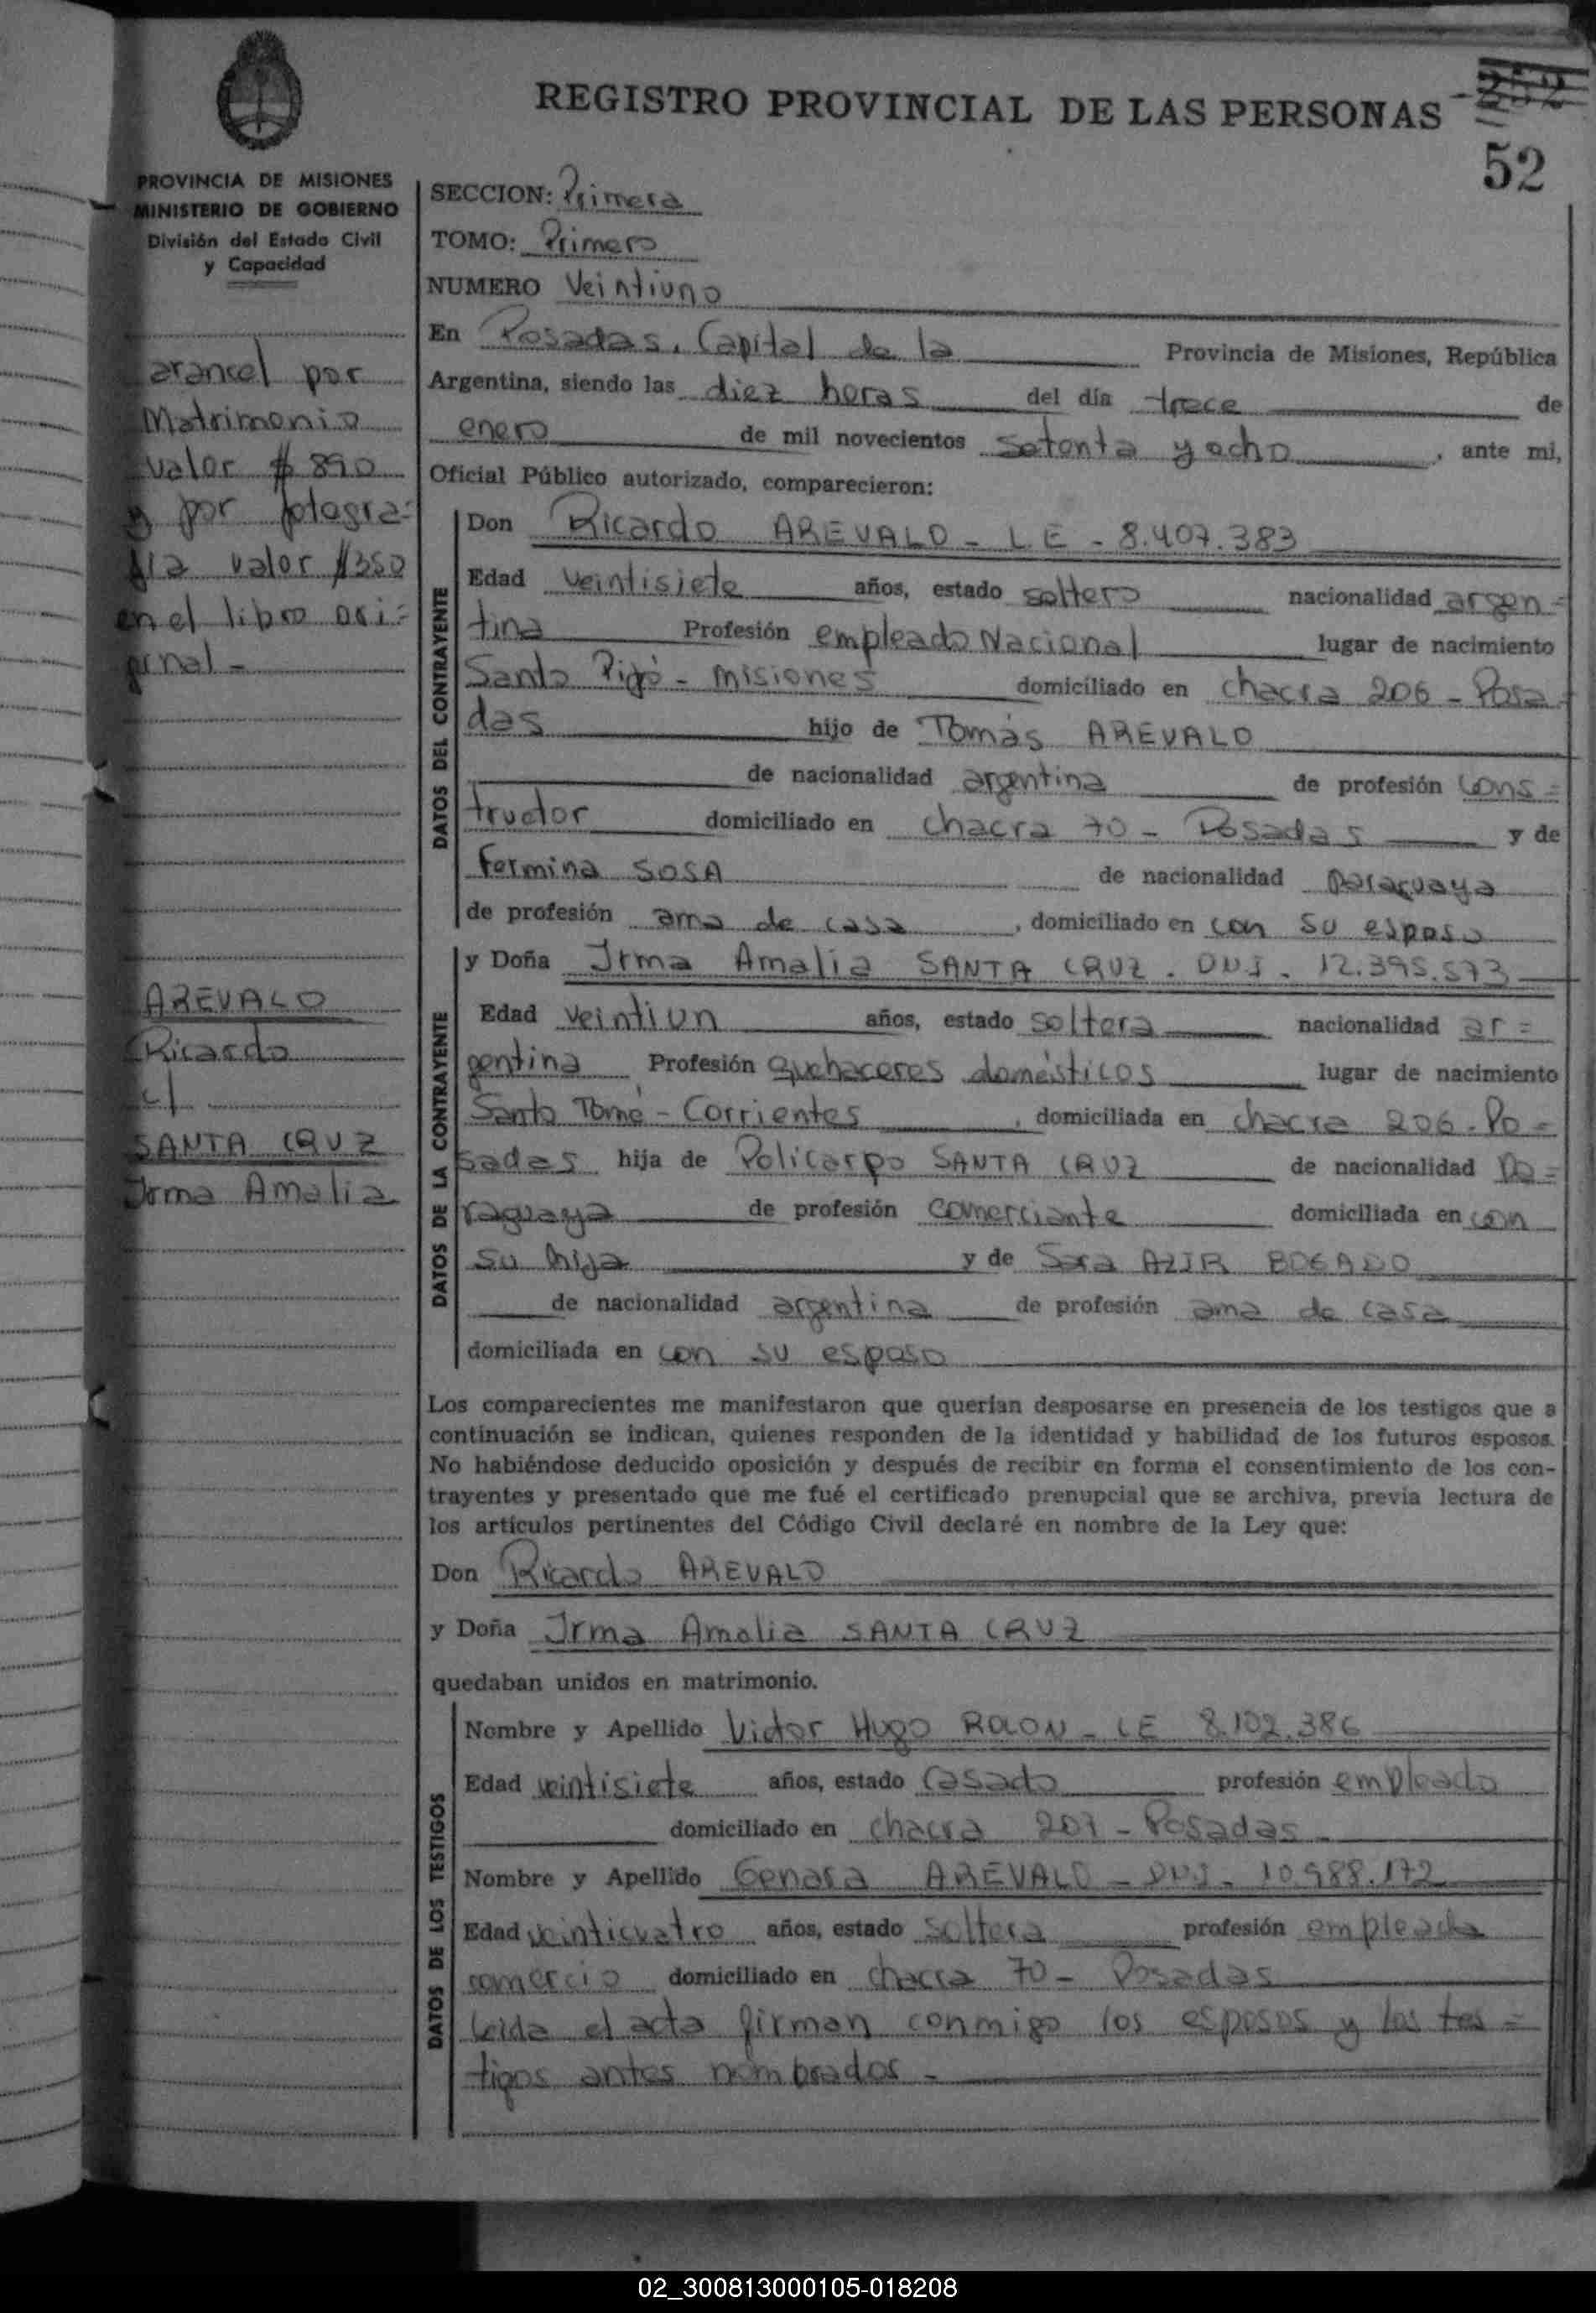 REGISTRO PROVINCIAL DE LAS PERSONAS
52
PROVINCIA DE MISIONES
MINISTERIO DE GOBIERNO
División del Estado Civil
y Capacidad
arancel por
Matrimonio
valor $ 890
y por fotogra=
fia valor $350
en el libro ori=
ginal -
AREVALO
Ricardo
c/
SANTA CRUZ
Irma Amalia
SECCION: Primera
TOMO: Primero
NUMERO Veintiuno
En Posadas, Capital de la Provincia de Misiones, República
Argentina, siendo las diez horas del día trece de
enero de mil novecientos setenta y ocho, ante mi,
Oficial Público autorizado, comparecieron:
DATOS DEL CONTRAYENTE
Don Ricardo AREVALO - LE - 8.407.383
Edad veintisiete años, estado soltero nacionalidad argen=
tina Profesión empleado Nacional lugar de nacimiento
Santo Pipó - Misiones domiciliado en chacra 206 - Posa=
das hijo de Tomás AREVALO
de nacionalidad argentina de profesión cons=
tructor domiciliado en chacra 70 - Posadas y de
Fermina SOSA de nacionalidad paraguaya
de profesión ama de casa, domiciliado en con su esposo
DATOS DE LA CONTRAYENTE
y Doña Irma Amalia SANTA CRUZ. DNI. 12.395.573
Edad veintiun años, estado soltera nacionalidad ar=
gentina Profesión Quehaceres domésticos lugar de nacimiento
Santo Tomé - Corrientes, domiciliada en chacra 206. Po=
sadas hija de Policarpo SANTA CRUZ de nacionalidad pa=
raguaya de profesión comerciante domiciliada en con
su hija y de Sara AZIR BOGADO
de nacionalidad argentina de profesión ama de casa
domiciliada en con su esposo
Los comparecientes me manifestaron que querían desposarse en presencia de los testigos que a
continuación se indican, quienes responden de la identidad y habilidad de los futuros esposos.
No habiéndose deducido oposición y después de recibir en forma el consentimiento de los con-
trayentes y presentado que me fué el certificado prenupcial que se archiva, previa lectura de
los artículos pertinentes del Código Civil declaré en nombre de la Ley que:
Don Ricardo AREVALO
y Doña Irma Amalia SANTA CRUZ
quedaban unidos en matrimonio.
DATOS DE LOS TESTIGOS
Nombre y Apellido Victor Hugo ROLON - LE 8.102.386
Edad veintisiete años, estado casado profesión empleado
domiciliado en chacra 207 - Posadas
Nombre y Apellido Genara AREVALO - DNI - 10.988.172
Edad veinticuatro años, estado soltera profesión empleada
comercio domiciliado en chacra 70 - Posadas
Leida el acta firman conmigo los esposos y los tes=
tigos antes nombrados -
02_300813000105-018208